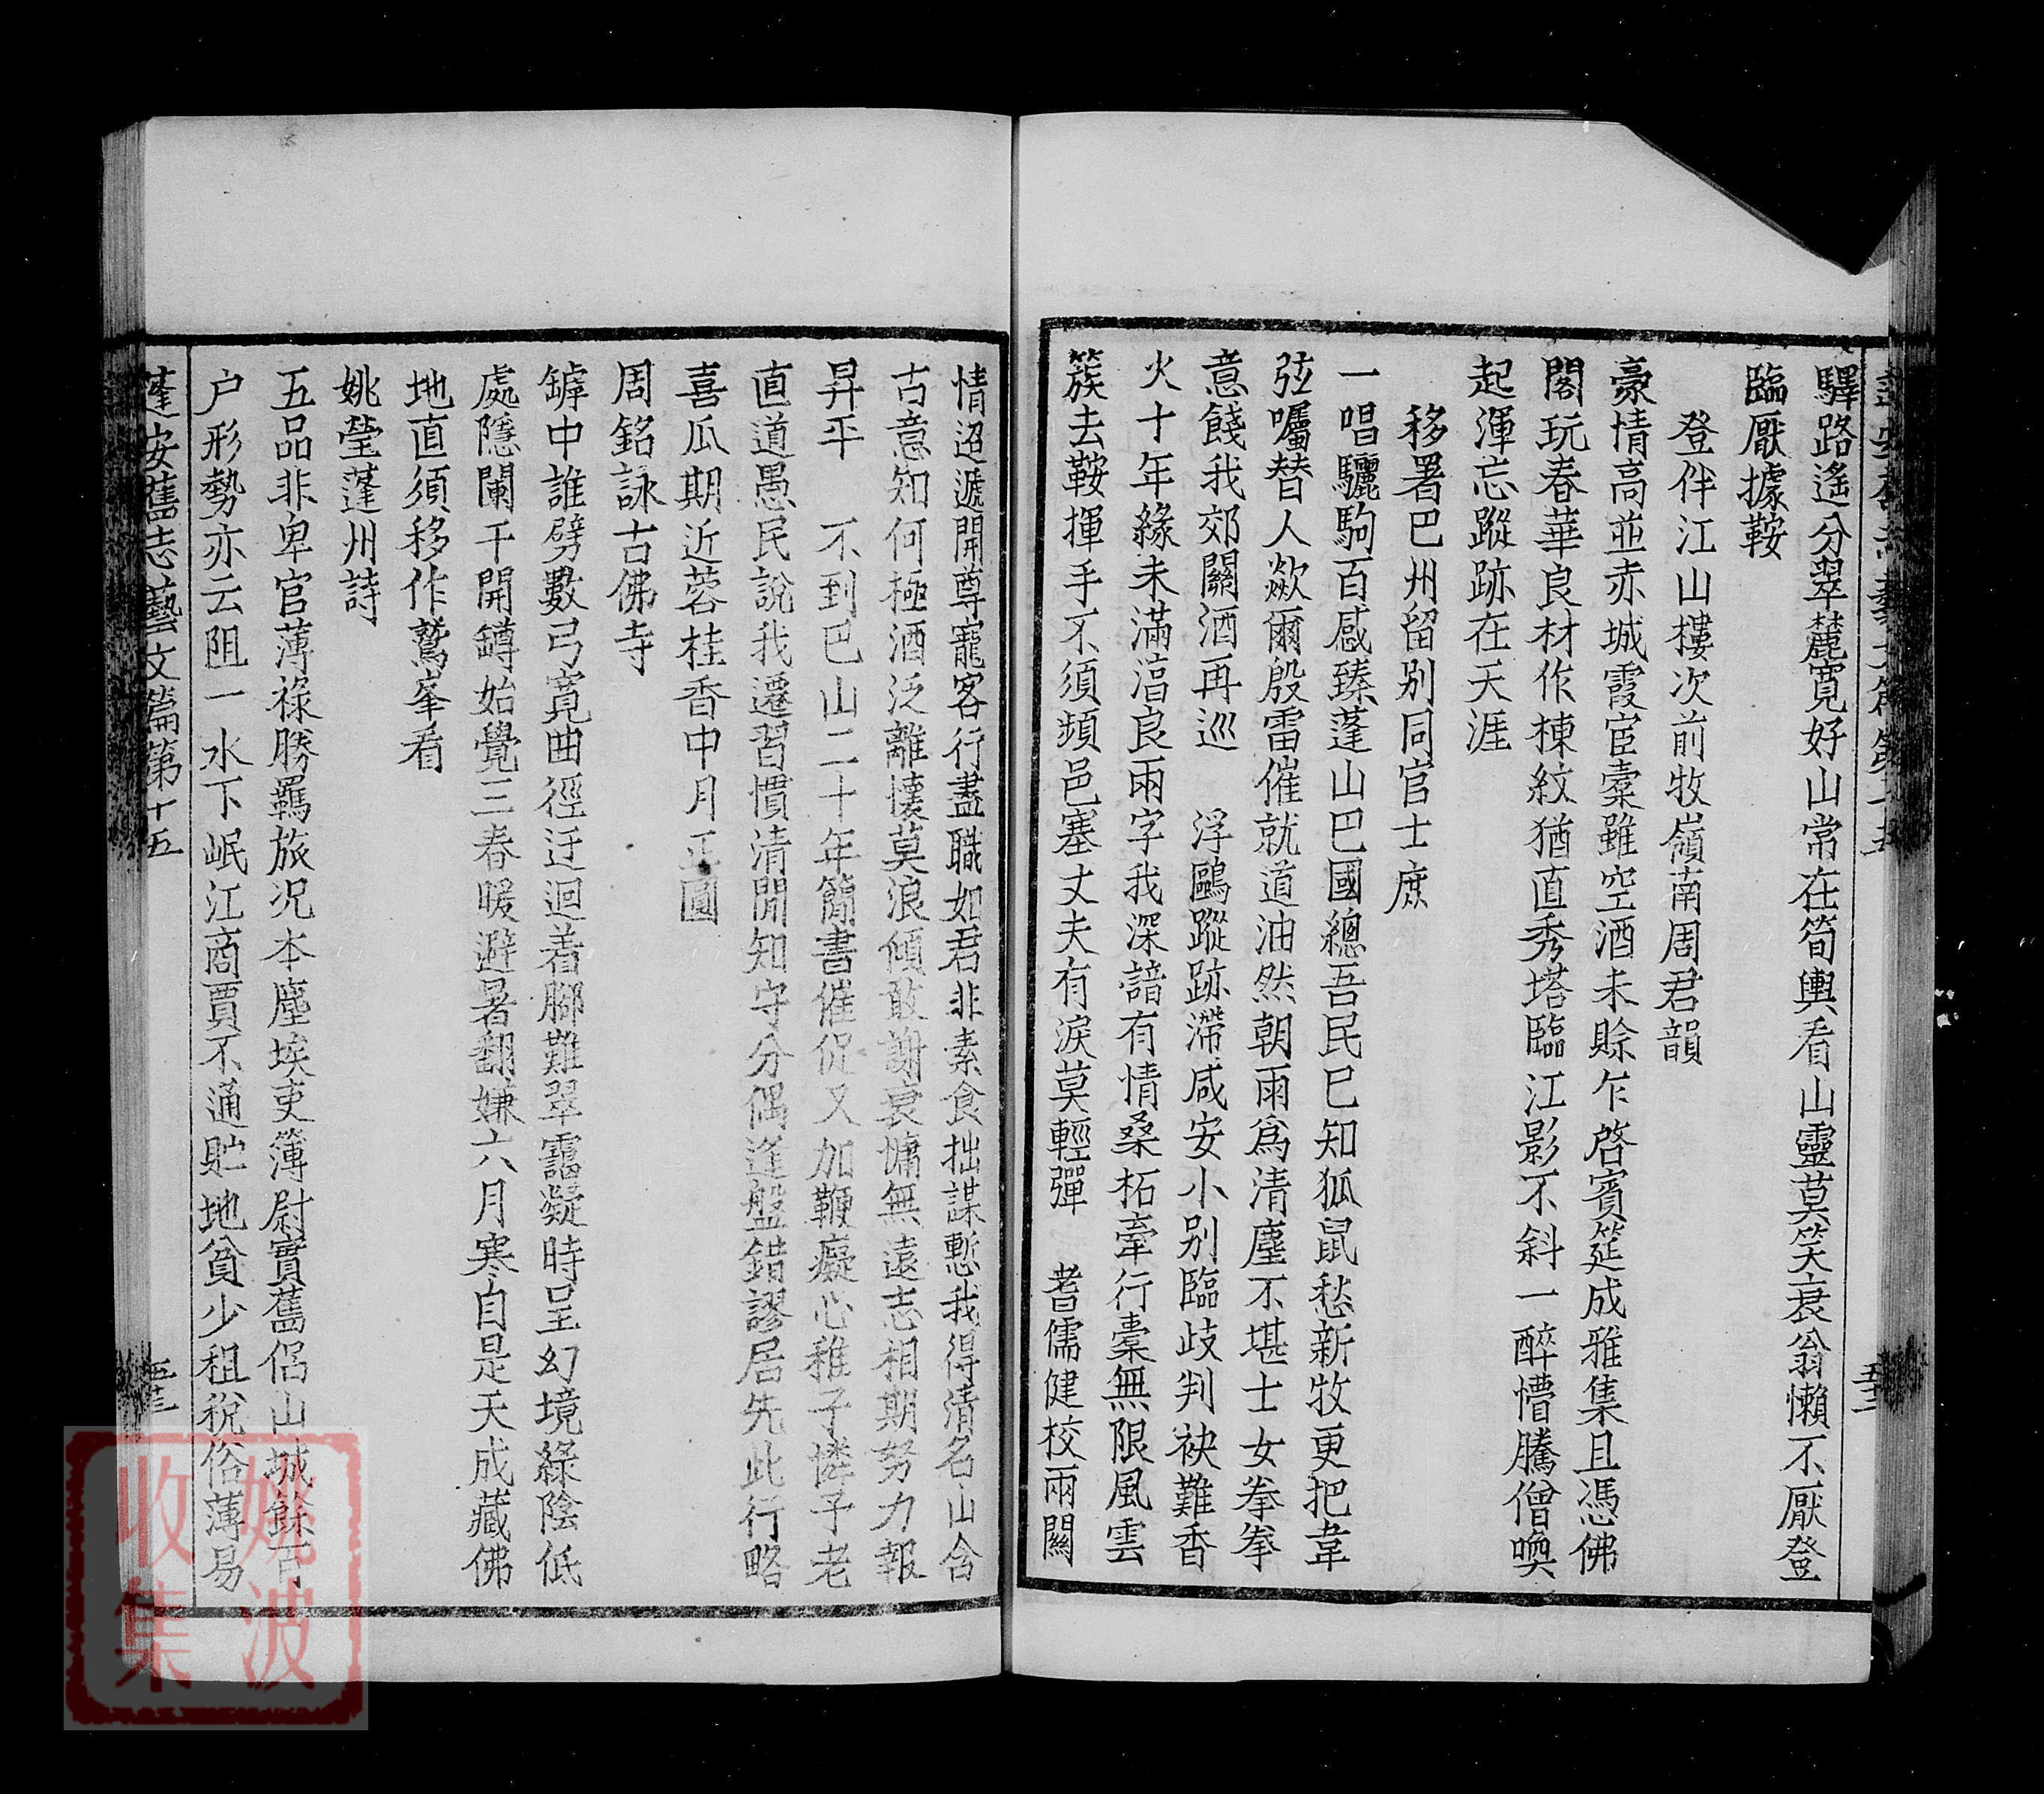 驛路遙分翠麓寬好山常在筍輿看山靈莫笑衰翁懶不厭登
臨厭據鞍
登伴江山樓次前牧嶺南周君韻
豪情高並赤城霞宦橐雖空酒未賒乍啓賓筵成雅集且憑佛
閣玩春華良材作棟紋猶直秀塔臨江影不斜一醉懵騰僧喚
起渾忘蹤跡在天涯
移署巴州留别同官士庶
一唱驪駒百感臻蓬山巴國總吾民已知狐鼠愁新牧更把韋
弦囑替人歘爾殷雷催就道油然朝雨爲清塵不堪士女拳拳
意餞我郊關酒再巡　浮鷗蹤跡滯咸安小别臨歧判袂難香
火十年緣未滿㴞良兩字我深諳有情桑柘牽行橐無限風雲
簇去鞍揮手不須頻邑塞丈夫有淚莫輕彈　耆儒健校兩關
情迢遞開尊寵客行盡職如君非素食拙謀慙我得清名山含
古意知何極酒泛離懷莫浪傾敢謝衰慵無遠志相期努力報
昇平　不到巴山二十年簡書催促又加鞭癡心稚子憐予老
直道愚民說我遷習慣清閒知守分偶逢盤錯謬居先此行略
喜瓜期近蓉桂香中月正圓
周銘詠古佛寺
罅中誰劈數弓寬曲徑迂迴着腳難翠靄凝時呈幻境綠陰低
處隱闌干開罇始覺三春暖避暑翻嫌六月寒自是天成藏佛
地直須移作鷲峯看
姚瑩蓬州詩
五品非卑官薄祿勝羈旅況本塵埃吏簿尉實舊侶山城餘百
户形勢亦云阻一水下岷江商賈不通貯地貧少租稅俗薄易
蓬安舊志藝文篇第十五
五十三
姚波
收集